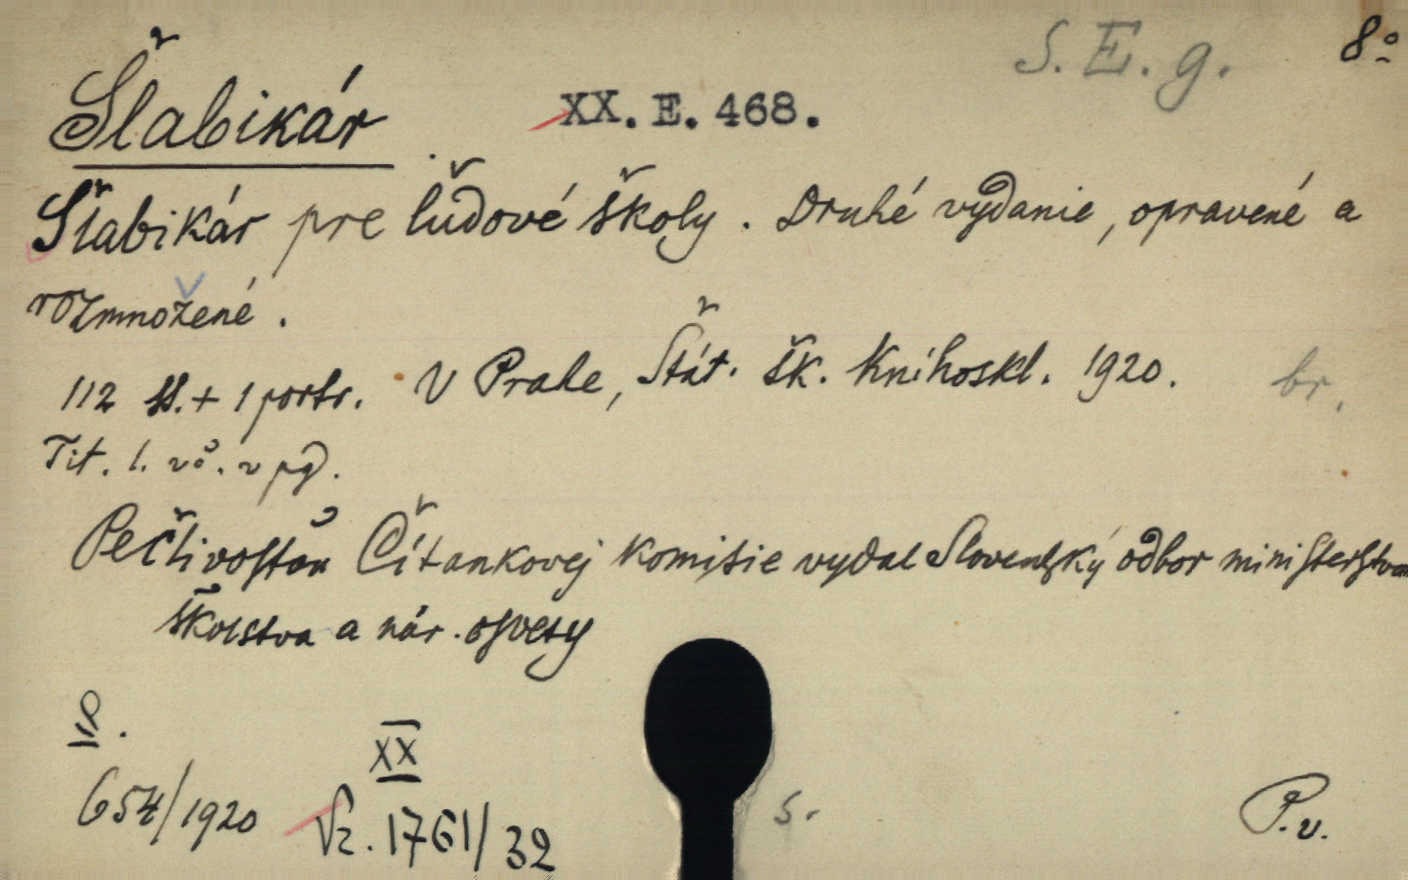 S. E. g. 8°
Šlabikár XX. E. 468.
Šlabikár pre ľudové školy. Druhé vydanie, opravené a
rozmnožené.
112 ss. + 1 portr. V Prahe, Štát. šk. knihoskl. 1920. br.
Tit. l. vč. v pg.
Pečlivosťou Čítankovej komisie vydal Slovenský odbor ministerstva
školstva a nár. osvety
XX
654/1920 Vz. 1761/32 s. P. v.